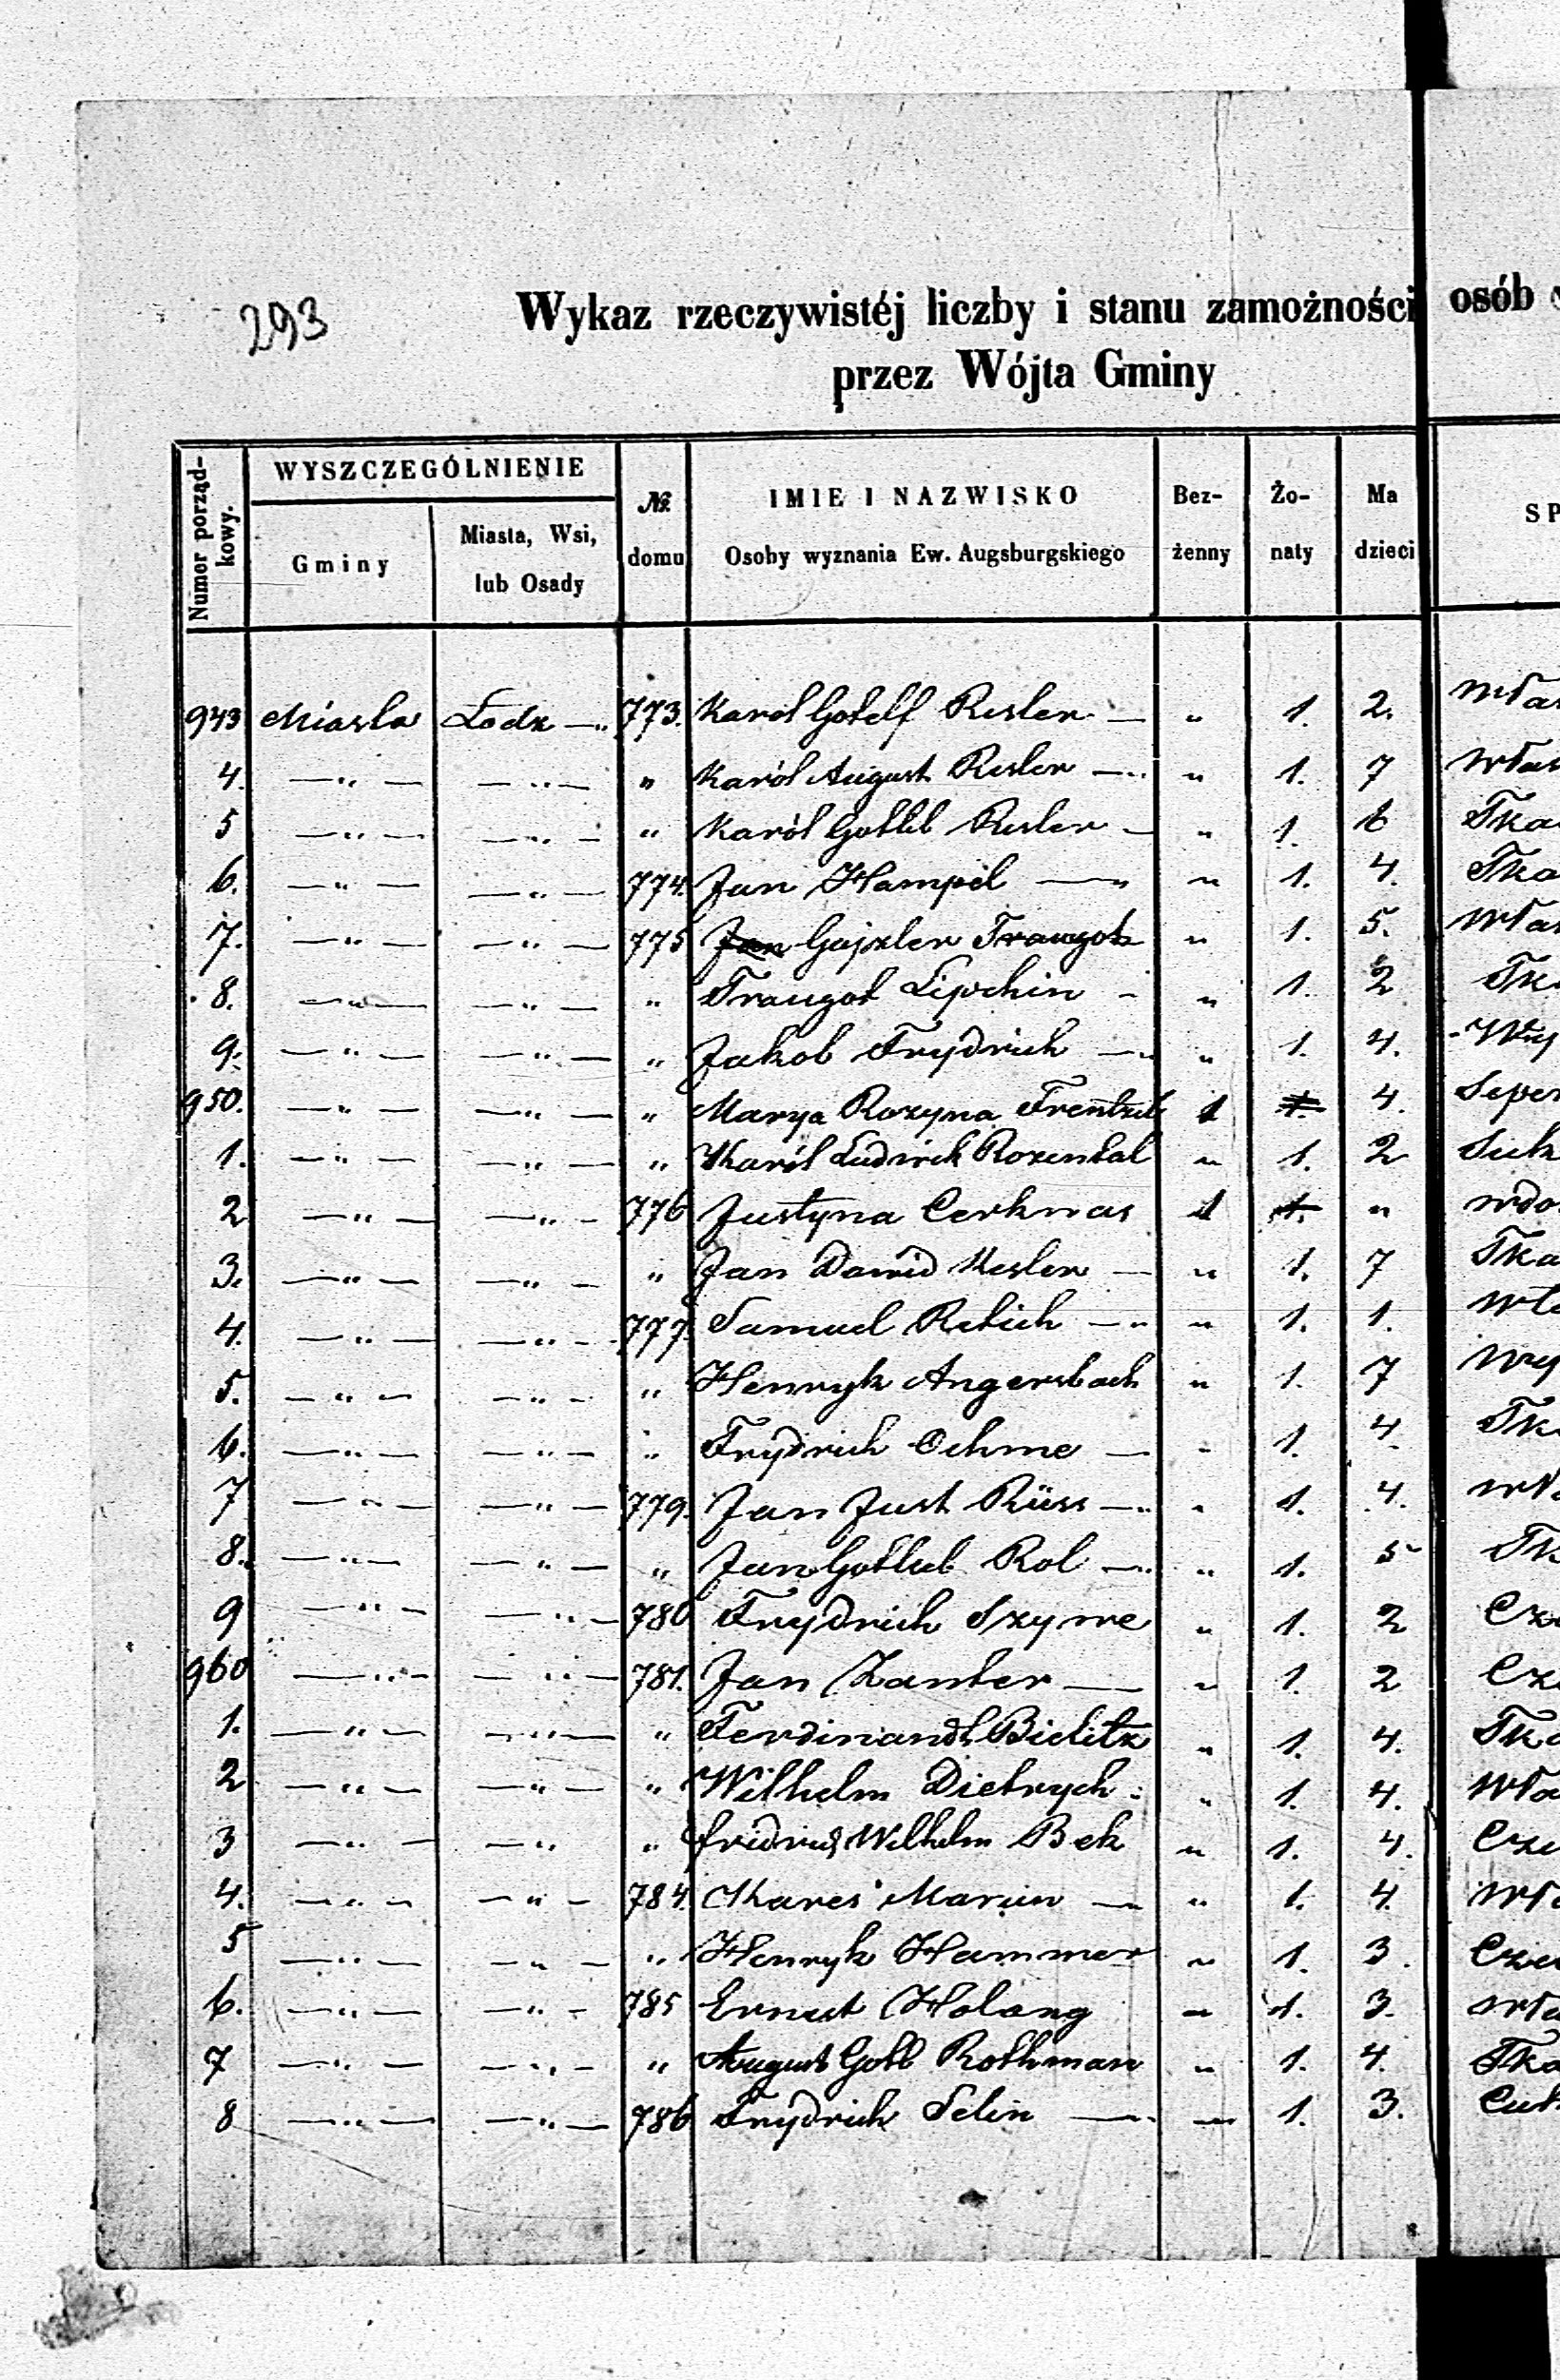 293
Wykaz rzeczywistéj liczby i stanu zamożności osób
przez Wójta Gminy
Numer porządkowy.
WYSZCZEGÓLNIENIE
Gminy
Miasta, Wsi, lub Osady
№ domu
IMIE I NAZWISKO
Osoby wyznania Ew. Augsburgskiego
Bezżenny
Żonaty
Ma dzieci
SP
943 Miasta Łodz —„ 773. Karol Gotelf Resler — „ 1. 2. Właś
4. —„— —„— „ Karól August Resler —„ „ 1. 7 Włas
5 —„— —„— „ Karól Gottlb Resler — „ 1. 6 Tka
6. —„— —„— 774. Jan Hampel —„ „ 1. 4. Tka
7. —„— —„— 775 Jan Gajzler Traugott „ 1. 5. Wła
8. —„— —„— „ Traugot Lipchin - „ 1. 2 Tk
9. —„— —„— „ Jakob Frydrich —„ „ 1. 4. Wy
950. —„— —„— „ Marya Rozyna Frentzel 1 1. 4. Seper
1. —„— —„— „ Karól Ludwik Rozental „ 1. 2 Suk
2 —„— —„— 776 Justyna Cerkwas 1 1. „ wdo
3. —„— —„— „ Jan Dawid Kesler — „ 1. 7 Tka
4. —„— —„— 777. Samuel Retich —„ „ 1. 1. Wł
5. —„— —„— „ Henryk Angersbach „ 1. 7 Wy
6. —„— —„— „ Frydrich Oehme — „ 1. 4. Tk
7 —„— —„— 779. Jan Just Rüss —„ „ 1. 4. Wł
8. —„— —„— „ Jan Gottlieb Rol —„ „ 1. 5 Tk
9 —„— —„— 780 Frydrich Szyme „ 1. 2 Cze
960 —„— —„— 781. Jan Kanter — „ 1. 2 Cze
1. —„— —„— „ Ferdinandt Bielitz „ 1. 4. Tka
2 —„— —„— „ Wilhelm Dietrych „ 1. 4. Wła
3 —„— —„ „ Fridrich Wilhelm Bek „ 1. 4. Cze
4. —„— —„— 784. Marcin — „ 1. 4. Wł
5 —„— —„— „ Henryk Hammer „ 1. 3. Cze
6. —„— —„— 785 Ernest Holang „ 1. 3. Wła
7 —„— —„— „ August Gotl Rothman „ 1. 4. Tka
8 —„— —„— 786 Frydrich Selin —„ „ 1. 3. Cuk